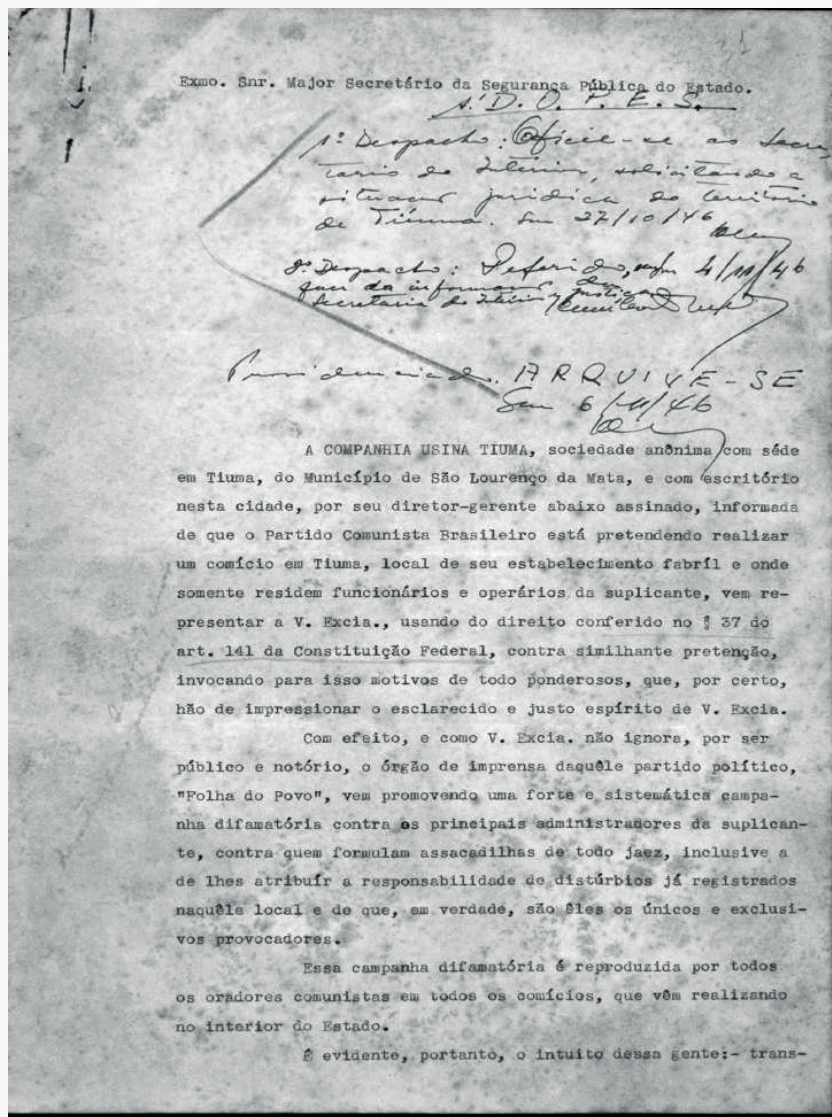 Exmo. Snr. Major Secretário da Segurança Pública do Estado.
D. O. P. E. S.
1º Despacho: Oficie-se ao Secre-
tario do Interior, solicitando a
situacao juridica do territorio
de Tiúma. Em 27/10/46
2º Despacho: Deferido, 4/11/46
face da informacao da
Secretaria do Interior e Justiça
Providenciado. ARQUIVE-SE
Em 6/11/46
A COMPANHIA USINA TIUMA, sociedade anônima com séde
em Tiuma, do Município de São Lourenço da Mata, e com escritório
nesta cidade, por seu diretor-gerente abaixo assinado, informada
de que o Partido Comunista Brasileiro está pretendendo realizar
um comício em Tiuma, local de seu estabelecimento fabríl e onde
somente residem funcionários e operários da suplicante, vem re-
presentar a V. Excia., usando do direito conferido no § 37 do
art. 141 da Constituição Federal, contra similhante pretenção,
invocando para isso motivos de todo ponderosos, que, por certo,
hão de impressionar o esclarecido e justo espírito de V. Excia.
Com efeito, e como V. Excia. não ignora, por ser
público e notório, o órgão de imprensa daquêle partido político,
"Folha do Povo", vem promovendo uma forte e sistemática campa-
nha difamatória contra os principais administradores da suplican-
te, contra quem formulam assacadilhas de todo jaez, inclusive a
de lhes atribuír a responsabilidade de distúrbios já registrados
naquêle local e de que, em verdade, são êles os únicos e exclusi-
vos provocadores.
Essa campanha difamatória é reproduzida por todos
os oradores comunistas em todos os comícios, que vêm realizando
no interior do Estado.
É evidente, portanto, o intuito dessa gente:- trans-